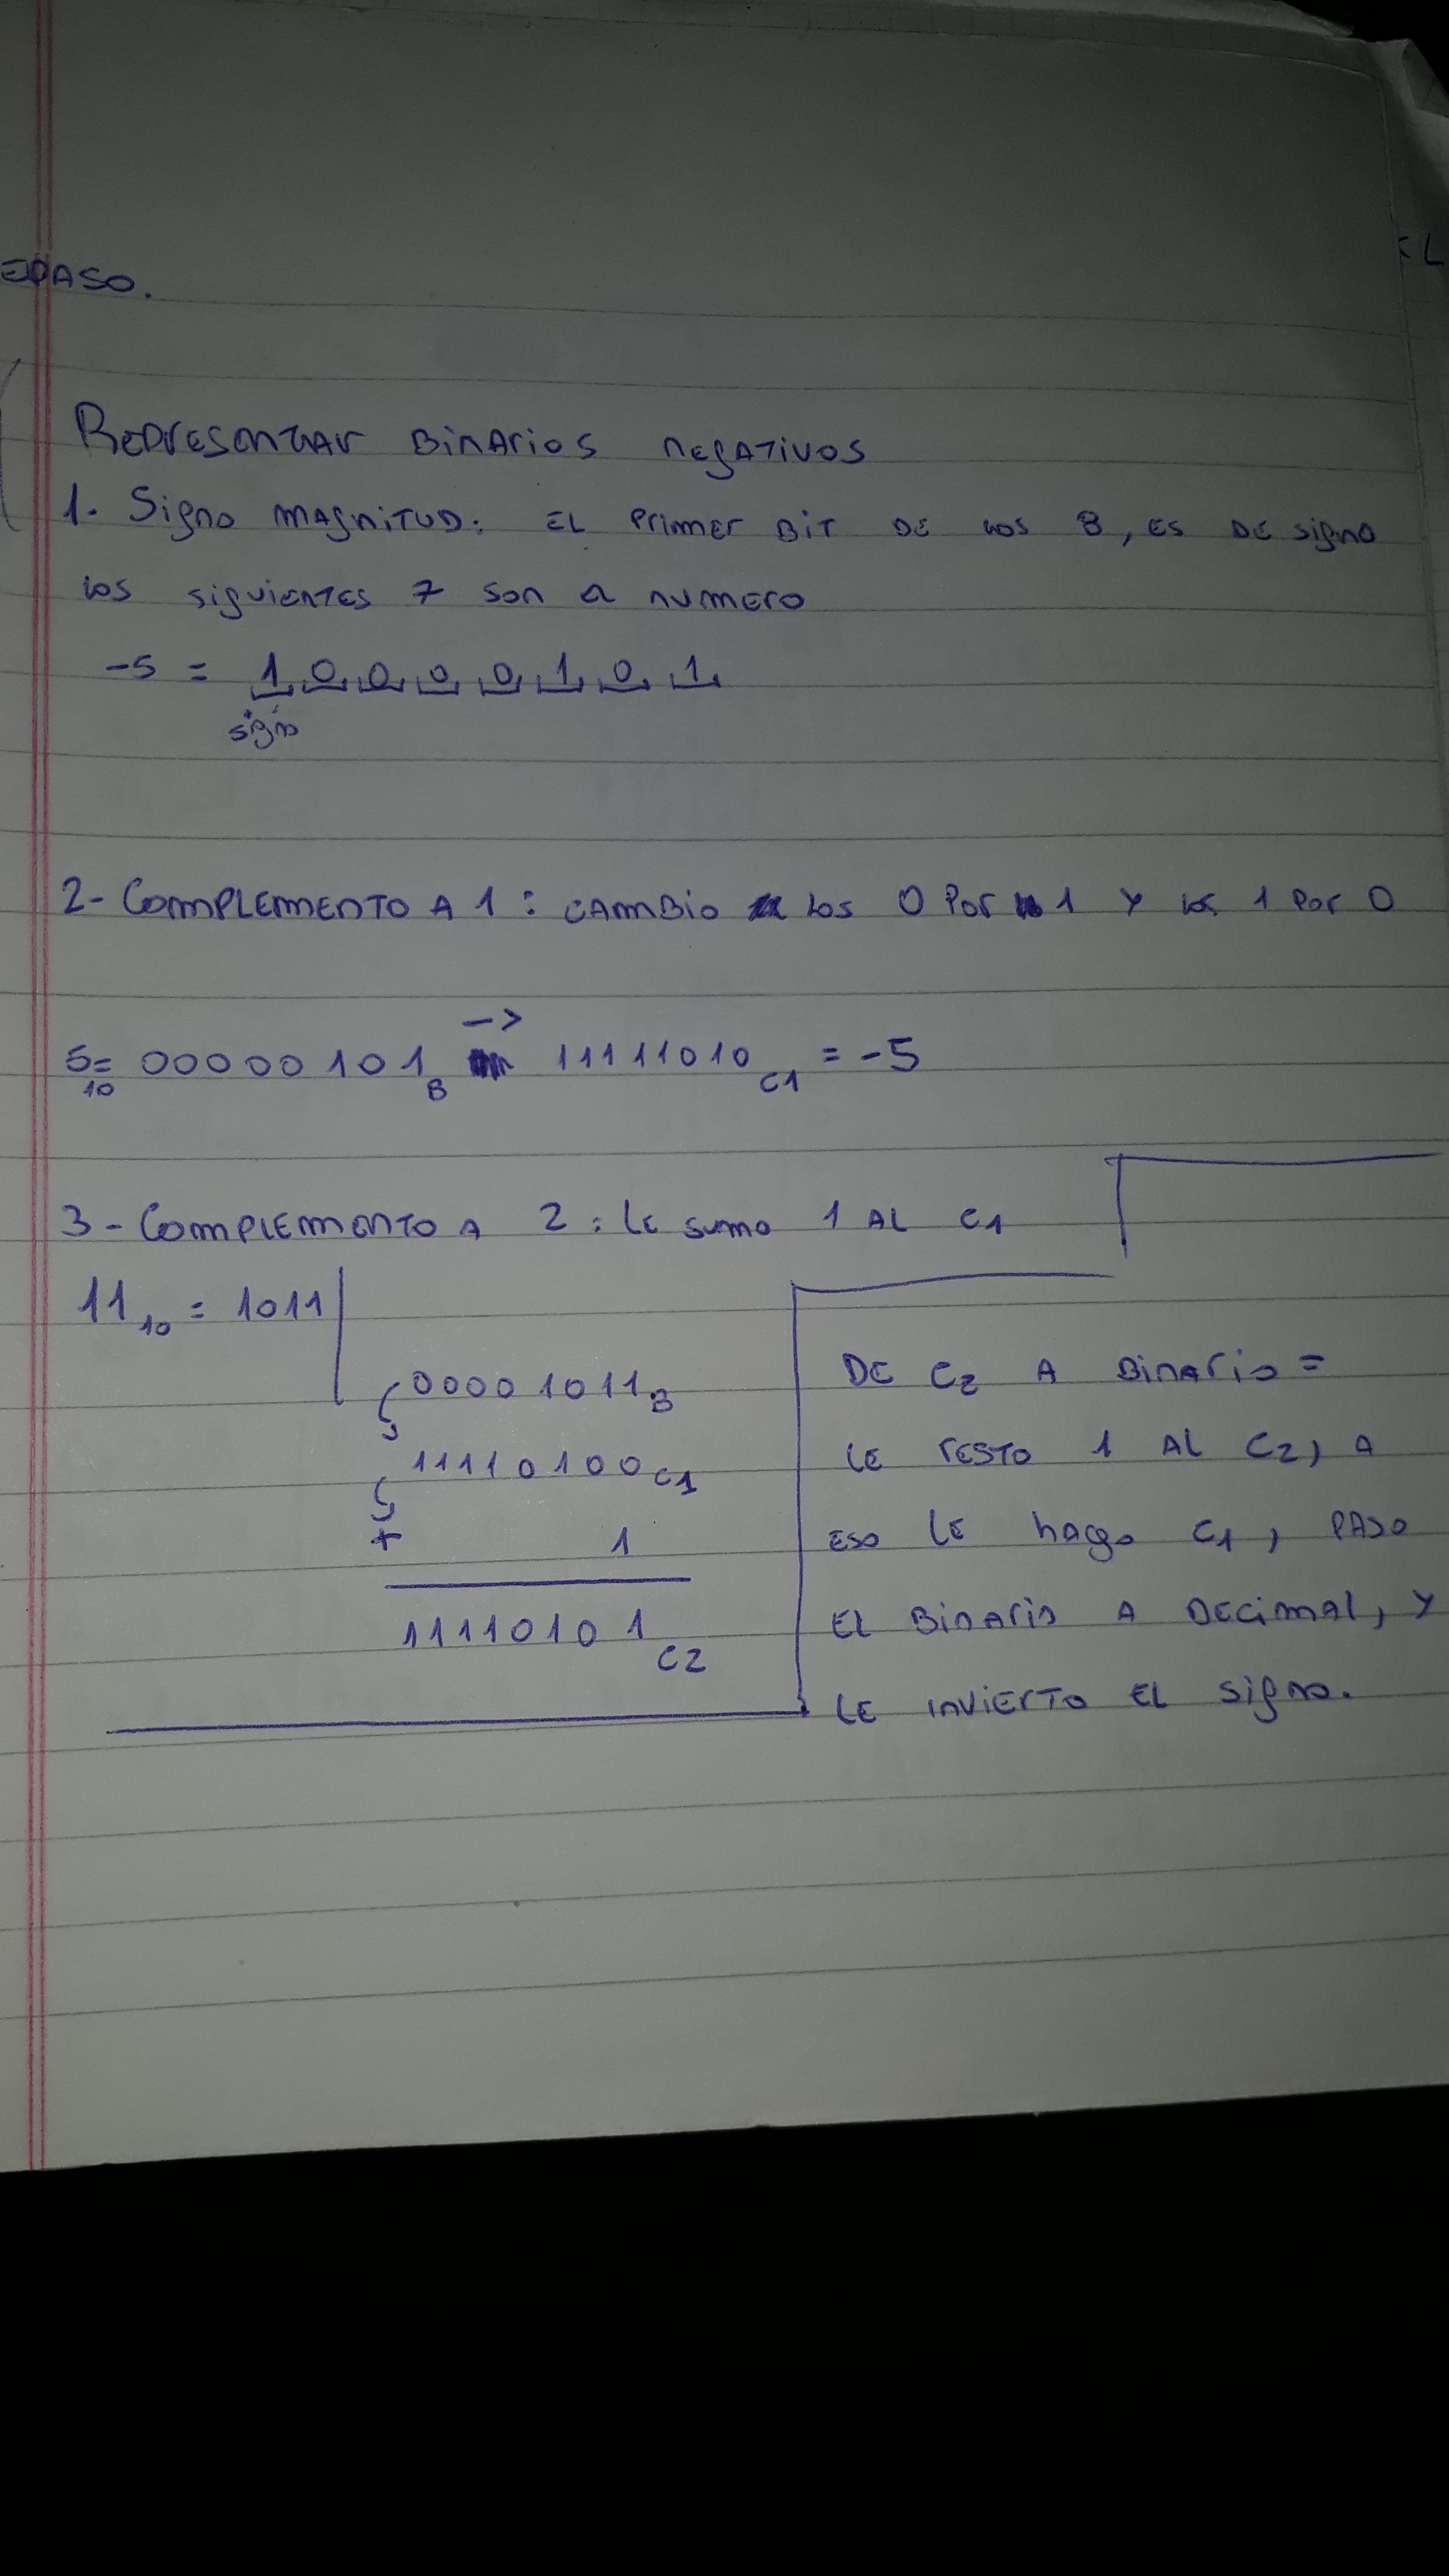 EPASO.
Representar Binarios negativos
1. Signo magnitud: El primer bit de los 8, es de signo
los siguientes 7 son el numero
-5 = 1 0 0 0 0 1 0 1
signo
2- Complemento a 1: cambio los 0 por 1 y los 1 por 0
->
5₁₀= 00000101B 11111010C1 = -5
3- Complemento a 2: le sumo 1 al C1
11₁₀ = 1011
00001011B
11110100C1
+ 1
11110101C2
De C2 a Binario =
le resto 1 al C2, a
eso le hago C1, paso
el binario a decimal, y
le invierto el signo.